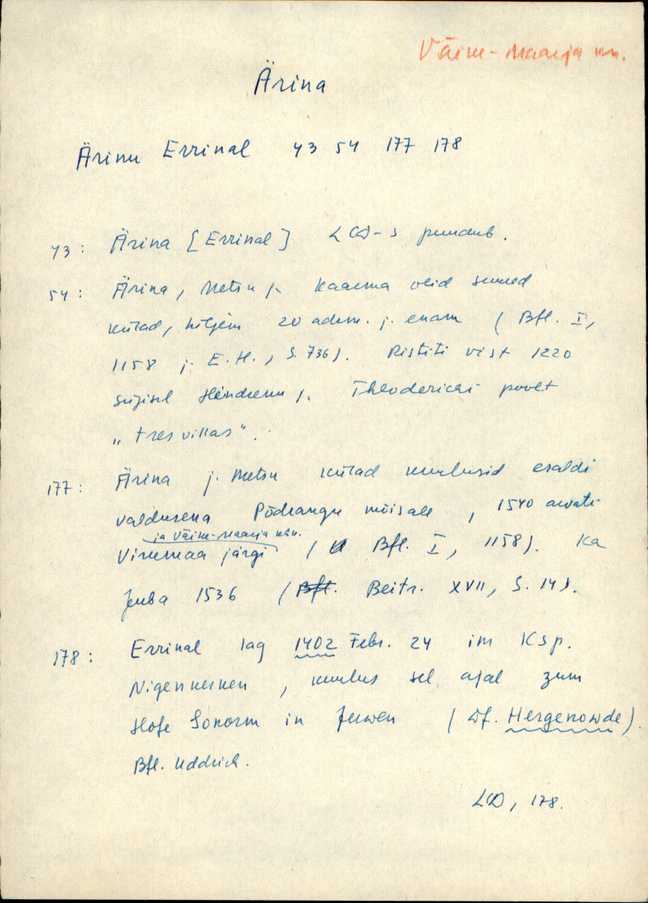 Väim-Maarja khn.
Ärina
Ärinu Errinal 43 54 177 178
43: Ärina [Errinal] LCD-s puudub.
54: Ärina, Metsu ja Kaarma olid suured
külad, hiljem 20 adm. j. enam (Bfl. I,
1158 j. E.H., S. 736). Ristiti vist 1220
sügisel Hindreku j. Theoderichi poolt
„tres villas".
177: Ärina j. Metsu külad kuulusid esialdi
valdusena Põdrangu mõisale, 1540 arvati
ja Väim-Maarja khn.
Virumaa järgi (Bfl. I, 1158). Ka
juba 1536 (Bfl. Beitr. XVII, S. 14).
178: Errinal lag 1402 Febr. 24 im Ksp.
Nigenkerken, kuulus sel ajal zum
Hofe Sonorm in Jerwen (Df. Hergenowde).
Bfl. Uddrich.
LCD, 178.